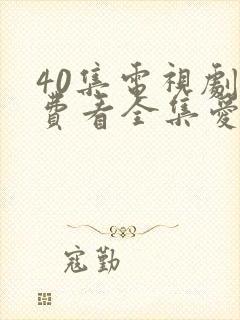 40集電視劇
費看全集愛
寇勤